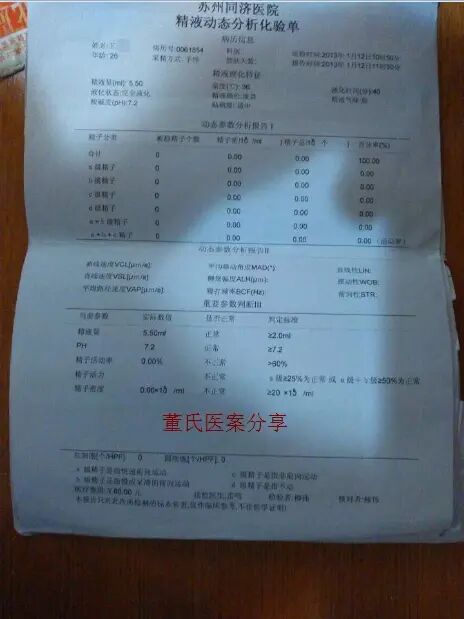 苏州同济医院
精液动态分析化验单
病历信息
年龄:26 采集方式:手停 报告时间:2013年1月12日11时50分
病历号:0061854 科别: 送检时间:2013年1月12日10时50分
精液理化特征
精液量(ml):5.50 温度(℃):36 液化时间(分):40
液化状态:完全液化 精液颜色: 精液气味:
酸碱度(pH):7.2 粘稠度:适中
动态参数分析报告I
精子分类 被检精子个数 精子密/10⁶/ml 精子总/10⁶个 百分率(%)
合计 0 0.00 0.00 100.00
a 级精子 0 0.00 0.00 0.00
b 级精子 0 0.00 0.00 0.00
c 级精子 0 0.00 0.00 0.00
d 级精子 0 0.00 0.00 0.00
a+b 级精子 0 0.00 0.00 0.00
a+b+c 精子 0 0.00 0.00 0.00 (活动率)
动态参数分析报告II
曲线速度VCL[μm/s]: 平均移动角度MAD(°): 直线性LIN:
直线速度VSL[μm/s]: 侧摆幅度ALH(μm): 摆动性WOB:
平均路径速度VAP[μm/s]: 鞭打频率BCF(Hz): 前向性STR:
重要参数判断III
当前参数 实际数值 是否正常 判定标准
精液量 5.50ml 正常 ≥2.0ml
PH 7.2 正常 ≥7.2
精子活动率 0.00% 不正常 >60%
精子活力 不正常 a级≥25%为正常 或 a级+b级≥50%为正常
精子密度 0.00×10⁶/ml 不正常 ≥20×10⁶/ml
董氏医案分享
红细胞[个/HPF]: 0 圆细胞[个/HPF]: 0
a 级精子是指快速前向运动 c 级精子是指非前向运动
b 级精子是指慢或呆滞的前向运动 d 级精子是指不动
医疗费用:¥60.00 元 送检医生: 检验者: 核对者: